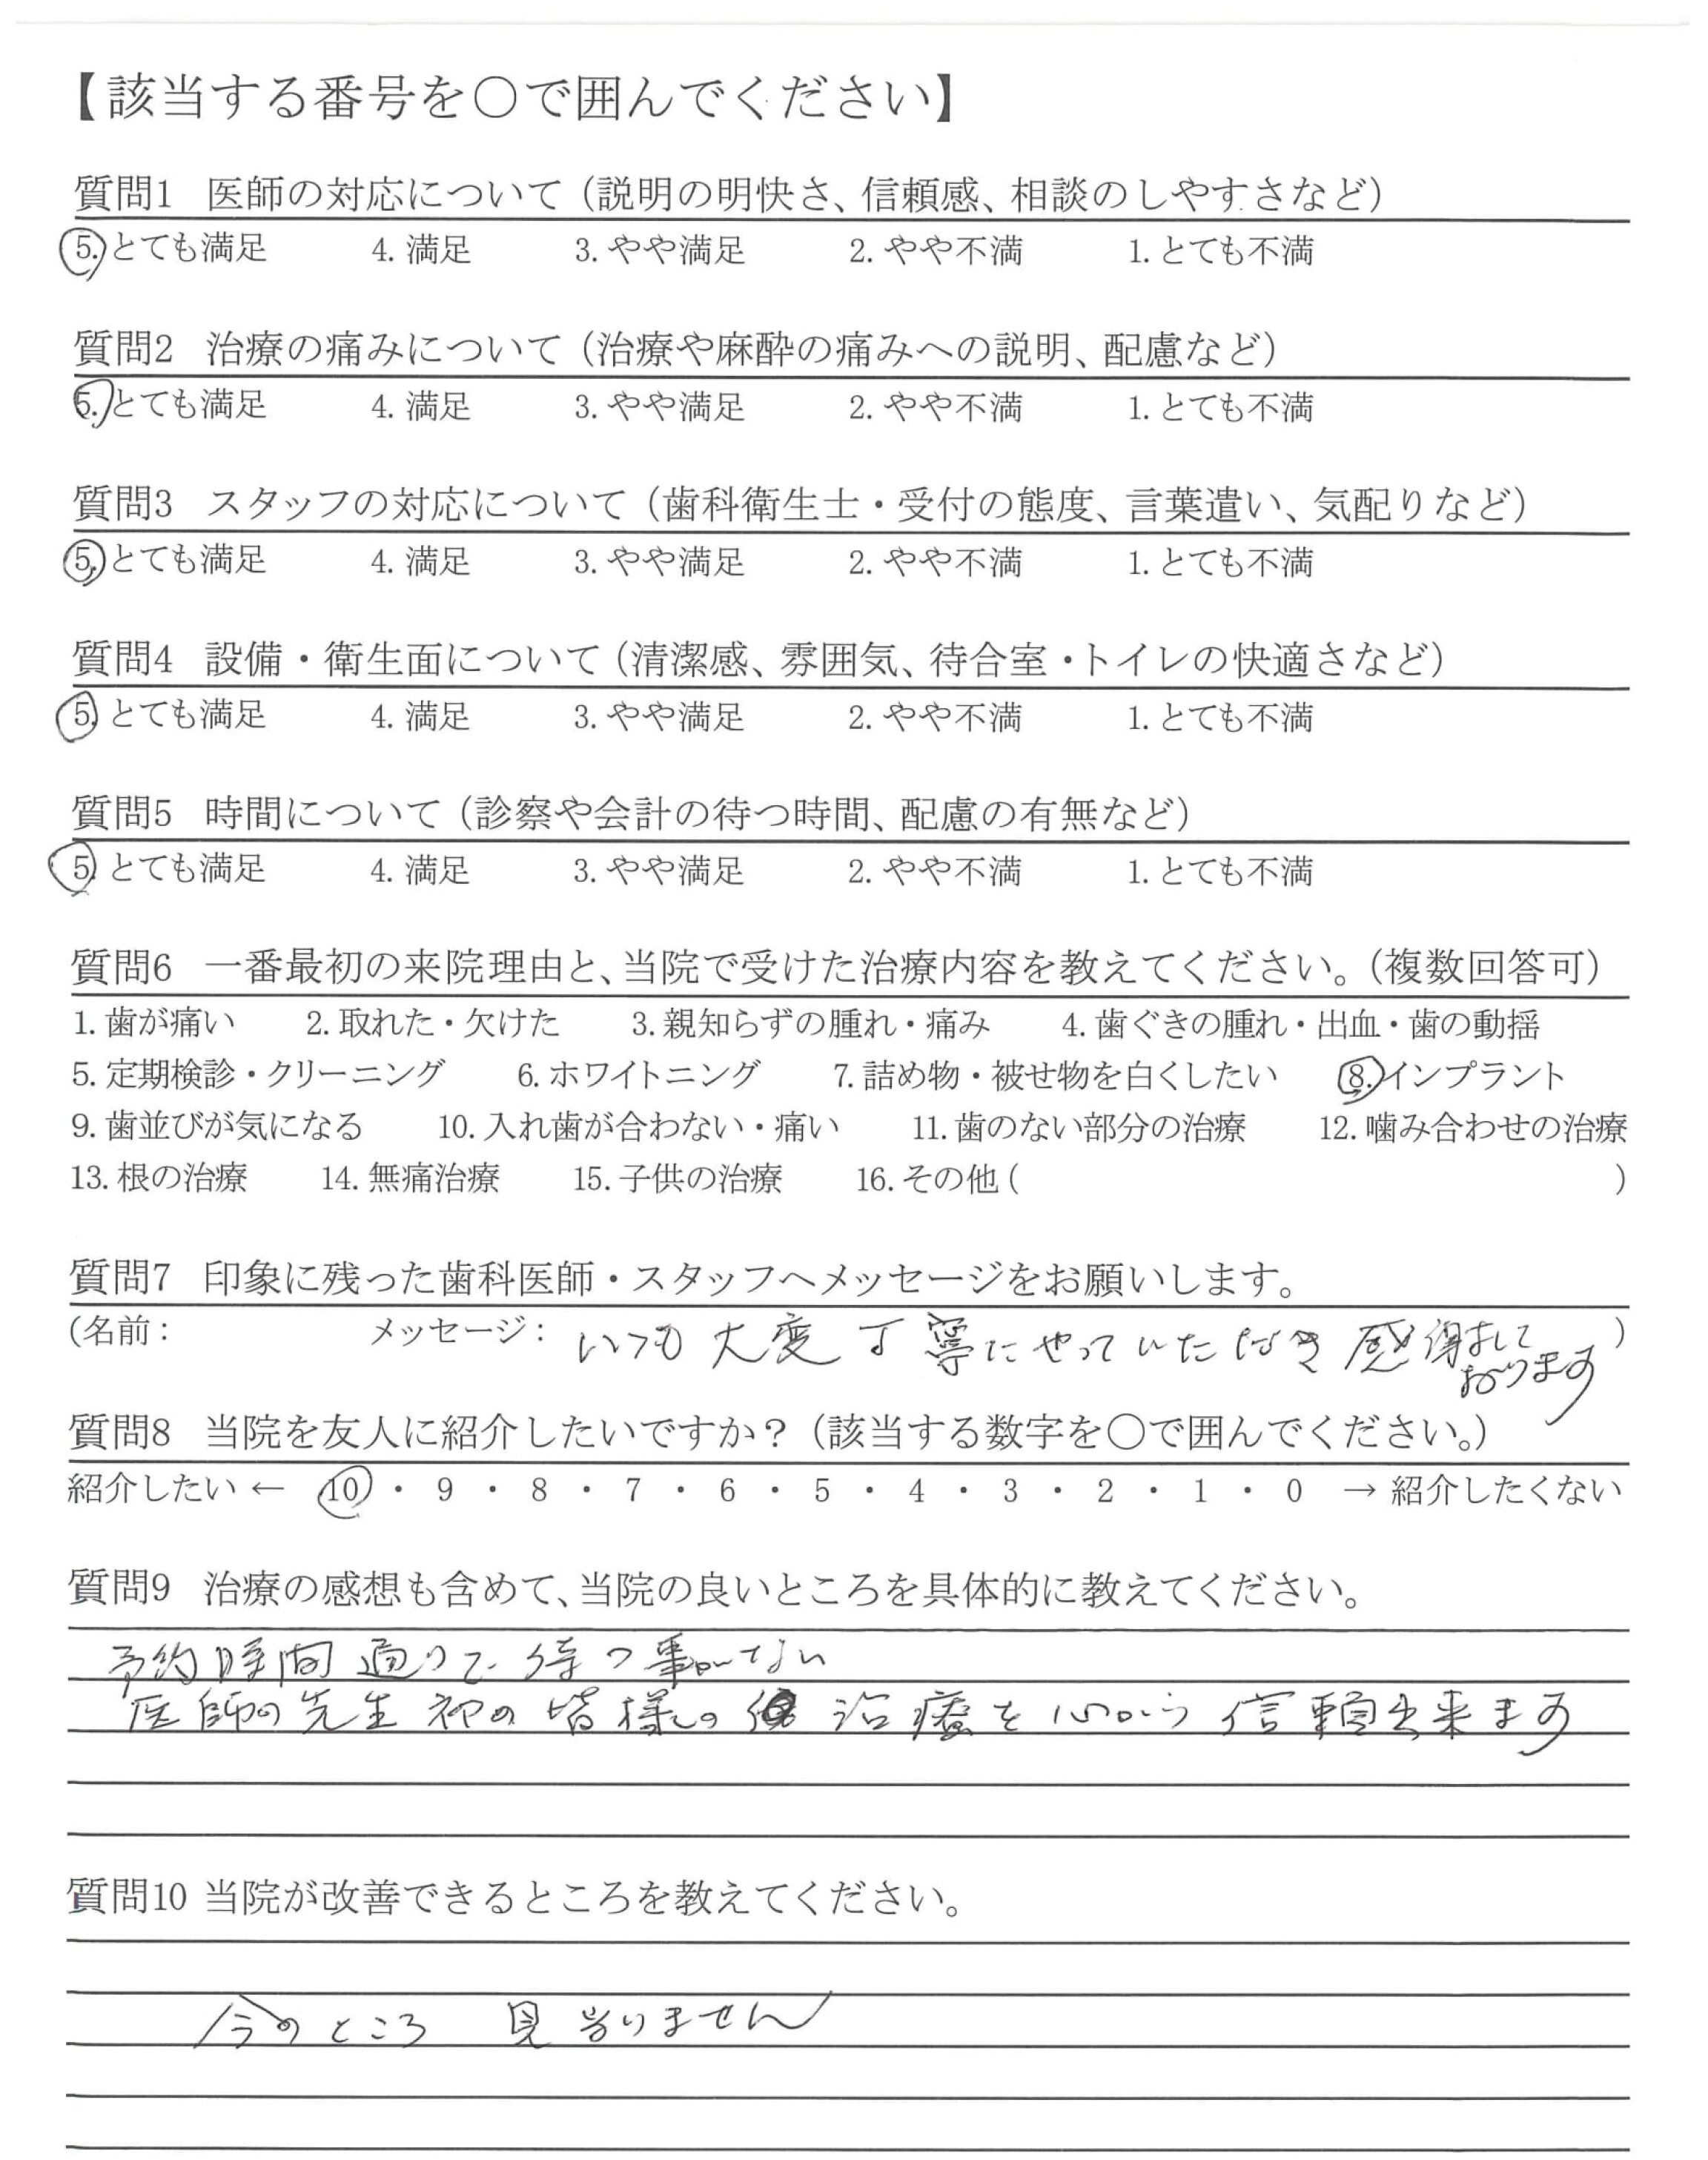 【該当する番号を〇で囲んでください】
質問1 医師の対応について（説明の明快さ、信頼感、相談のしやすさなど）
5. とても満足 4. 満足 3. やや満足 2. やや不満 1. とても不満
質問2 治療の痛みについて（治療や麻酔の痛みへの説明、配慮など）
5. とても満足 4. 満足 3. やや満足 2. やや不満 1. とても不満
質問3 スタッフの対応について（歯科衛生士・受付の態度、言葉遣い、気配りなど）
5. とても満足 4. 満足 3. やや満足 2. やや不満 1. とても不満
質問4 設備・衛生面について（清潔感、雰囲気、待合室・トイレの快適さなど）
5. とても満足 4. 満足 3. やや満足 2. やや不満 1. とても不満
質問5 時間について（診察や会計の待つ時間、配慮の有無など）
5. とても満足 4. 満足 3. やや満足 2. やや不満 1. とても不満
質問6 一番最初の来院理由と、当院で受けた治療内容を教えてください。（複数回答可）
1. 歯が痛い 2. 取れた・欠けた 3. 親知らずの腫れ・痛み 4. 歯ぐきの腫れ・出血・歯の動揺
5. 定期検診・クリーニング 6. ホワイトニング 7. 詰め物・被せ物を白くしたい 8. インプラント
9. 歯並びが気になる 10. 入れ歯が合わない・痛い 11. 歯のない部分の治療 12. 噛み合わせの治療
13. 根の治療 14. 無痛治療 15. 子供の治療 16. その他（ ）
質問7 印象に残った歯科医師・スタッフへメッセージをお願いします。
（名前： メッセージ： いつも大変丁寧にやっていただき感謝して ）
おります
質問8 当院を友人に紹介したいですか？（該当する数字を〇で囲んでください。）
紹介したい ← 10 ・ 9 ・ 8 ・ 7 ・ 6 ・ 5 ・ 4 ・ 3 ・ 2 ・ 1 ・ 0 → 紹介したくない
質問9 治療の感想も含めて、当院の良いところを具体的に教えてください。
予約時間通りで待つ事がない
医師の先生初め皆様の 治療を心から信頼出来ます
質問10 当院が改善できるところを教えてください。
今のところ 見当りません